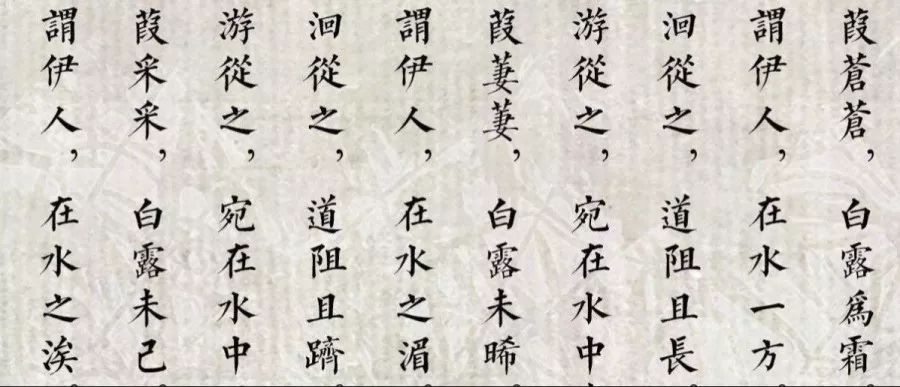 葭蒼蒼，白露爲霜
謂伊人，在水一方
洄從之，道阻且長
游從之，宛在水中
葭萋萋，白露未晞
謂伊人，在水之湄
洄從之，道阻且躋
游從之，宛在水中
葭采采，白露未己
謂伊人，在水之涘